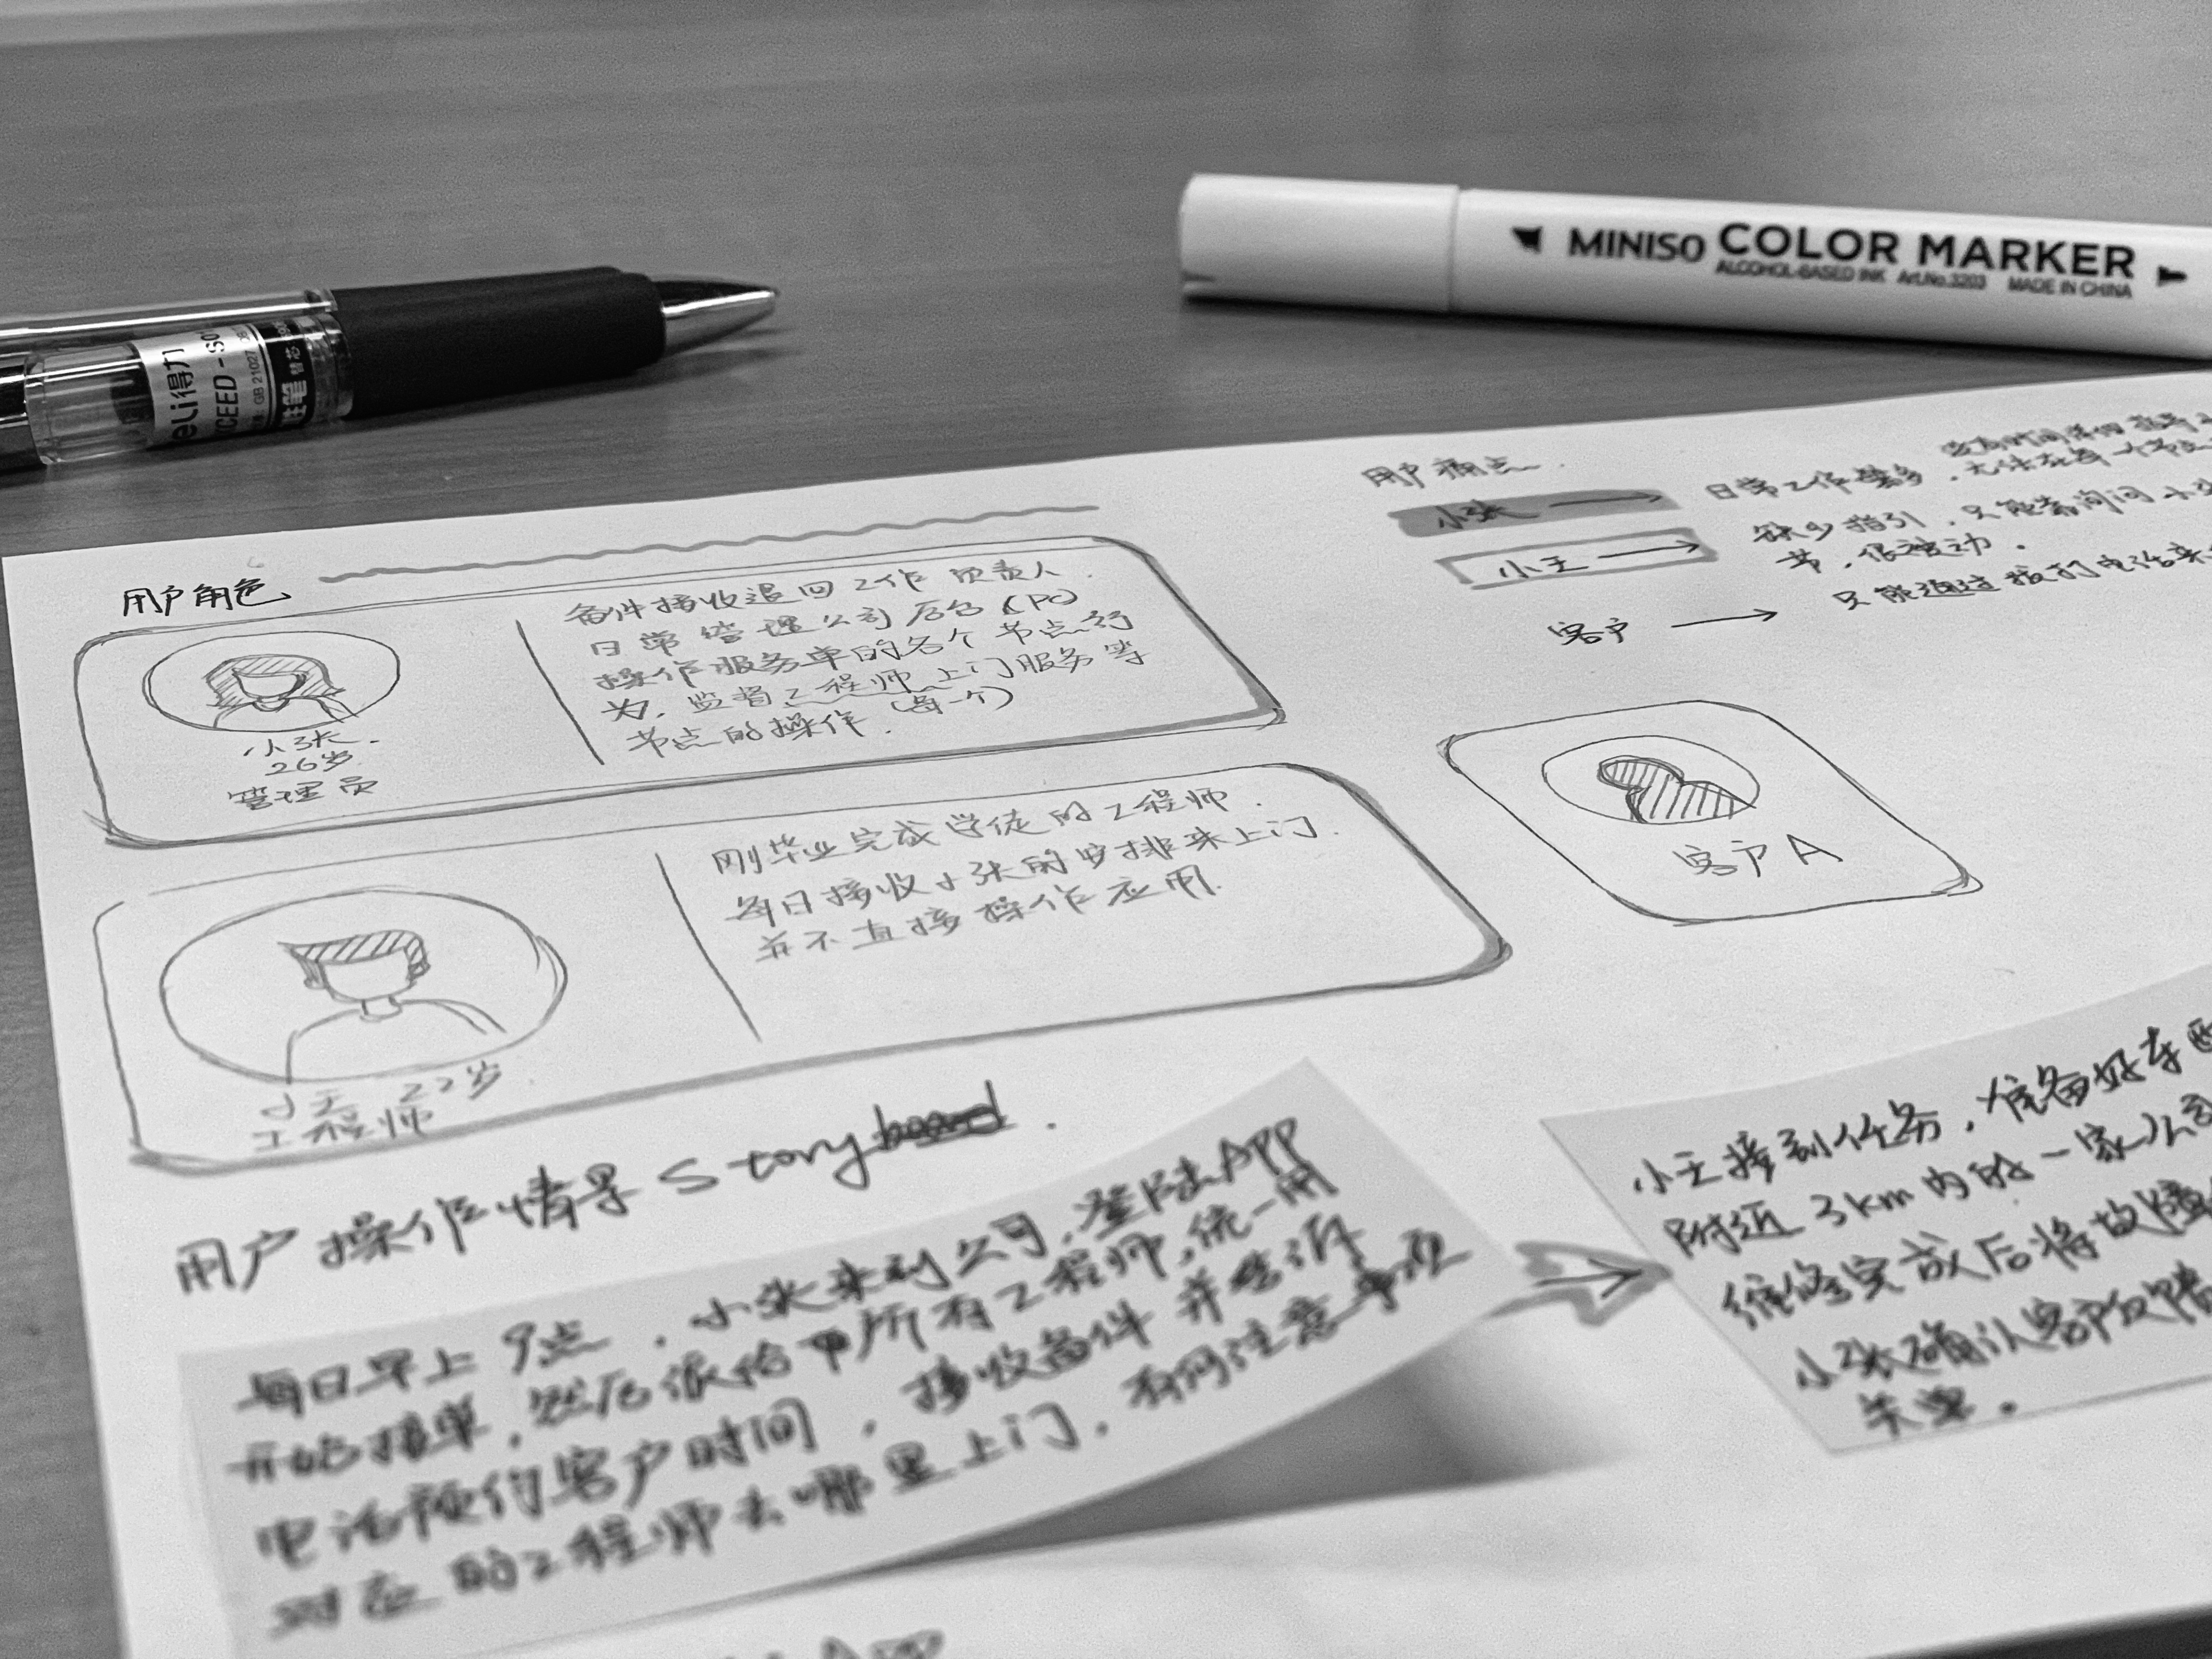 MINISO COLOR MARKER
ALCOHOL-BASED INK Art.No.3203 MADE IN CHINA
eli得力
XCEED
GB 21027
替芯
用户痛点
小张 → 日常工作繁多,
小王 → 缺少指引,只能靠询问小张
节,很被动.
客户 → 只能通过拨打电话来
用户角色
小张.
26岁
管理员
备件接收退回工作负责人.
日常管理公司后台(PC)
操作服务单的各个节点行
为,监督工程师上门服务等
节点的操作.(每一个)
小王 22岁.
工程师
刚毕业完成学徒的工程师.
每日接收小张的安排来上门.
并不直接操作应用.
客户A
用户操作情景Storyboard.
每日早上9点,小张来到公司,登陆APP
开始接单,然后派给所有工程师,统一用
电话预约客户时间,接收备件并告诉
对应的工程师去哪里上门,有何注意事项
小王接到任务,准备好车
附近3km内的一家公司
维修完成后将故障
小张确认客户反馈
关单.
APP